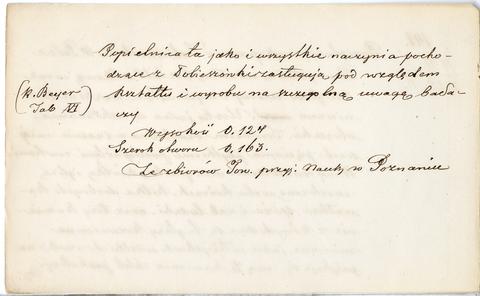 Popielnica ta jako i wszystkie naczynia pocho-
dzące z Dobieszówki zasługują pod względem
kształtu i wyrobu na szczególną uwagę bada-
czy
(K. Beyer
Tab XI)
Wysokość 0.124
Szerok otworu 0.163.
Ze zbiorów Tow. przyj: Nauk, w Poznaniu